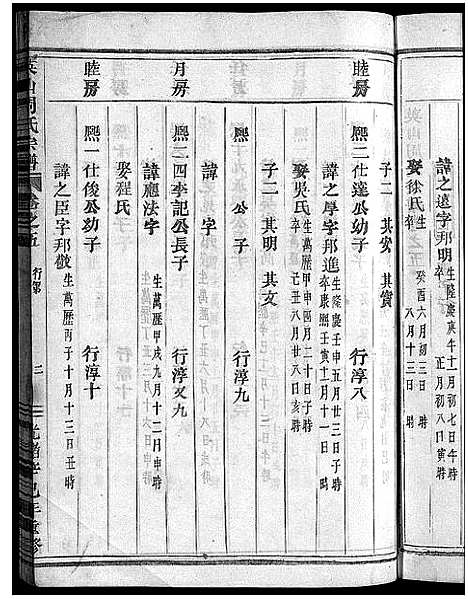 諱之遠字邦明 生隆慶庚午十一初七日午時
卒 正月初八日寅時
娶徐氏 生 癸酉六月初三日 時
卒 八月十三日 時
子二 其安 其實
睦房 熙二仕達公幼子 行淳八
諱之學字邦進 生隆慶壬申五月廿三日子時
卒康熙壬寅十二月十一日 時
娶吳氏 生萬歷甲申四月二十日子時
卒己丑八月廿八日亥時
子二 其明 其文
月房 熙 公子 行淳九
諱 字 生萬歷丁丑六月十六日 時
熙二四李記公長子 行淳又九
諱應法字 生萬歷甲戌九月十二月申時
娶程氏
睦房 熙一仕俊公幼子 行淳十
諱之臣字邦儆 生萬歷丙子十月十三日丑時
英山周氏宗譜 卷之五 行緒 二 光緒辛巳年重修